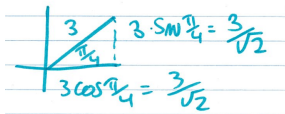 3
π/4
3 · Sin π/4 = 3/√2
3 cos π/4 = 3/√2